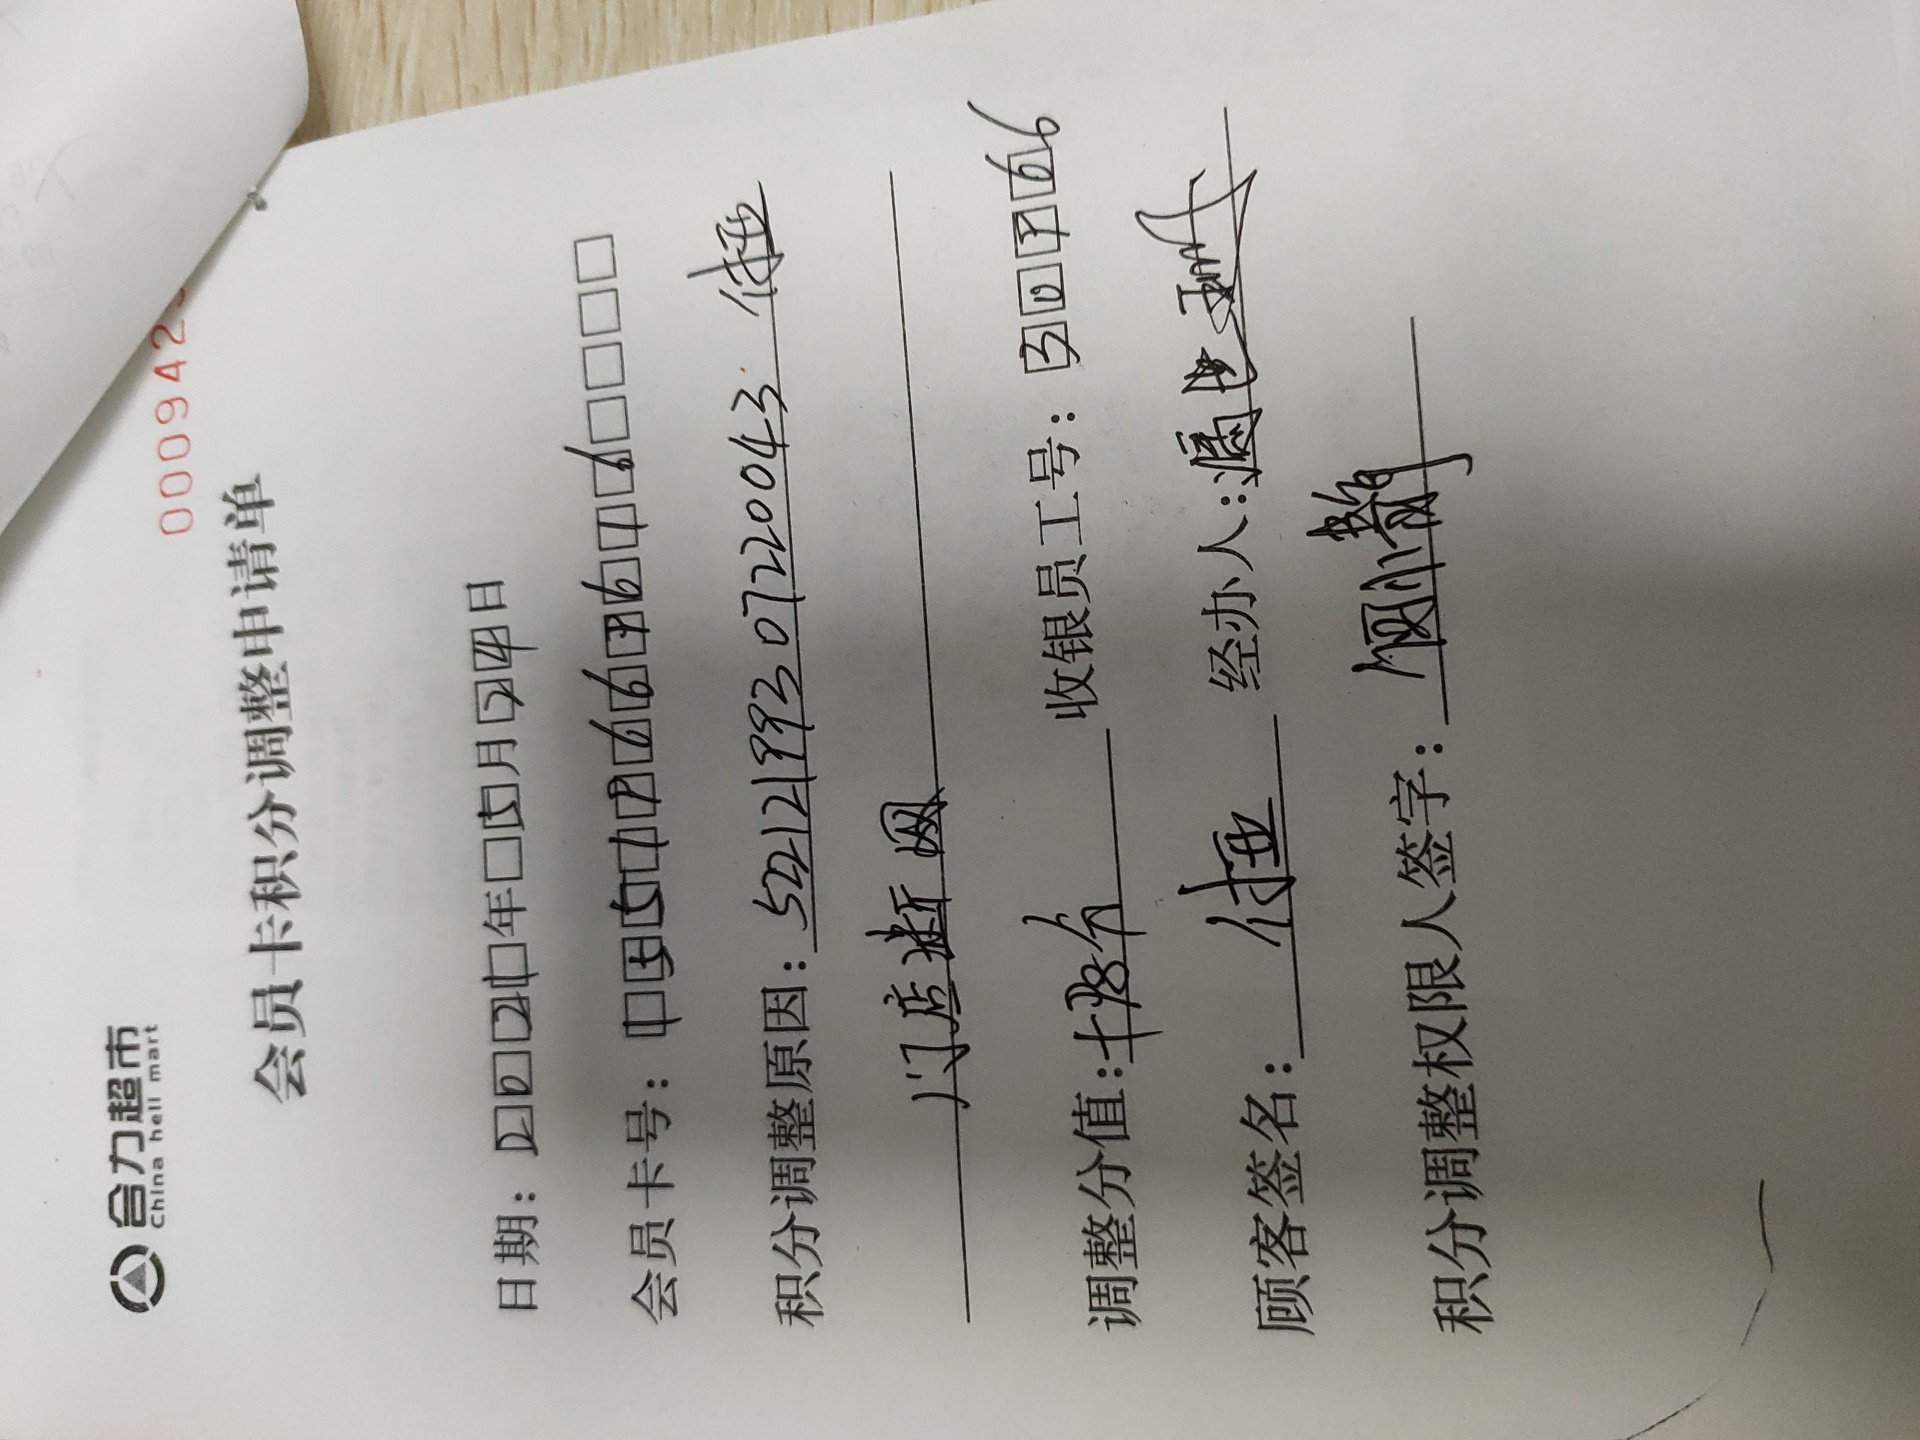 合力超市
China hell mart
000942
会员卡积分调整申请单
日期：2021年5月24日
会员卡号：
积分调整原因：52212199307220043 付亚
门店断网
调整分值：+78分 收银员工号：30766
顾客签名：付亚 经办人：
积分调整权限人签字：